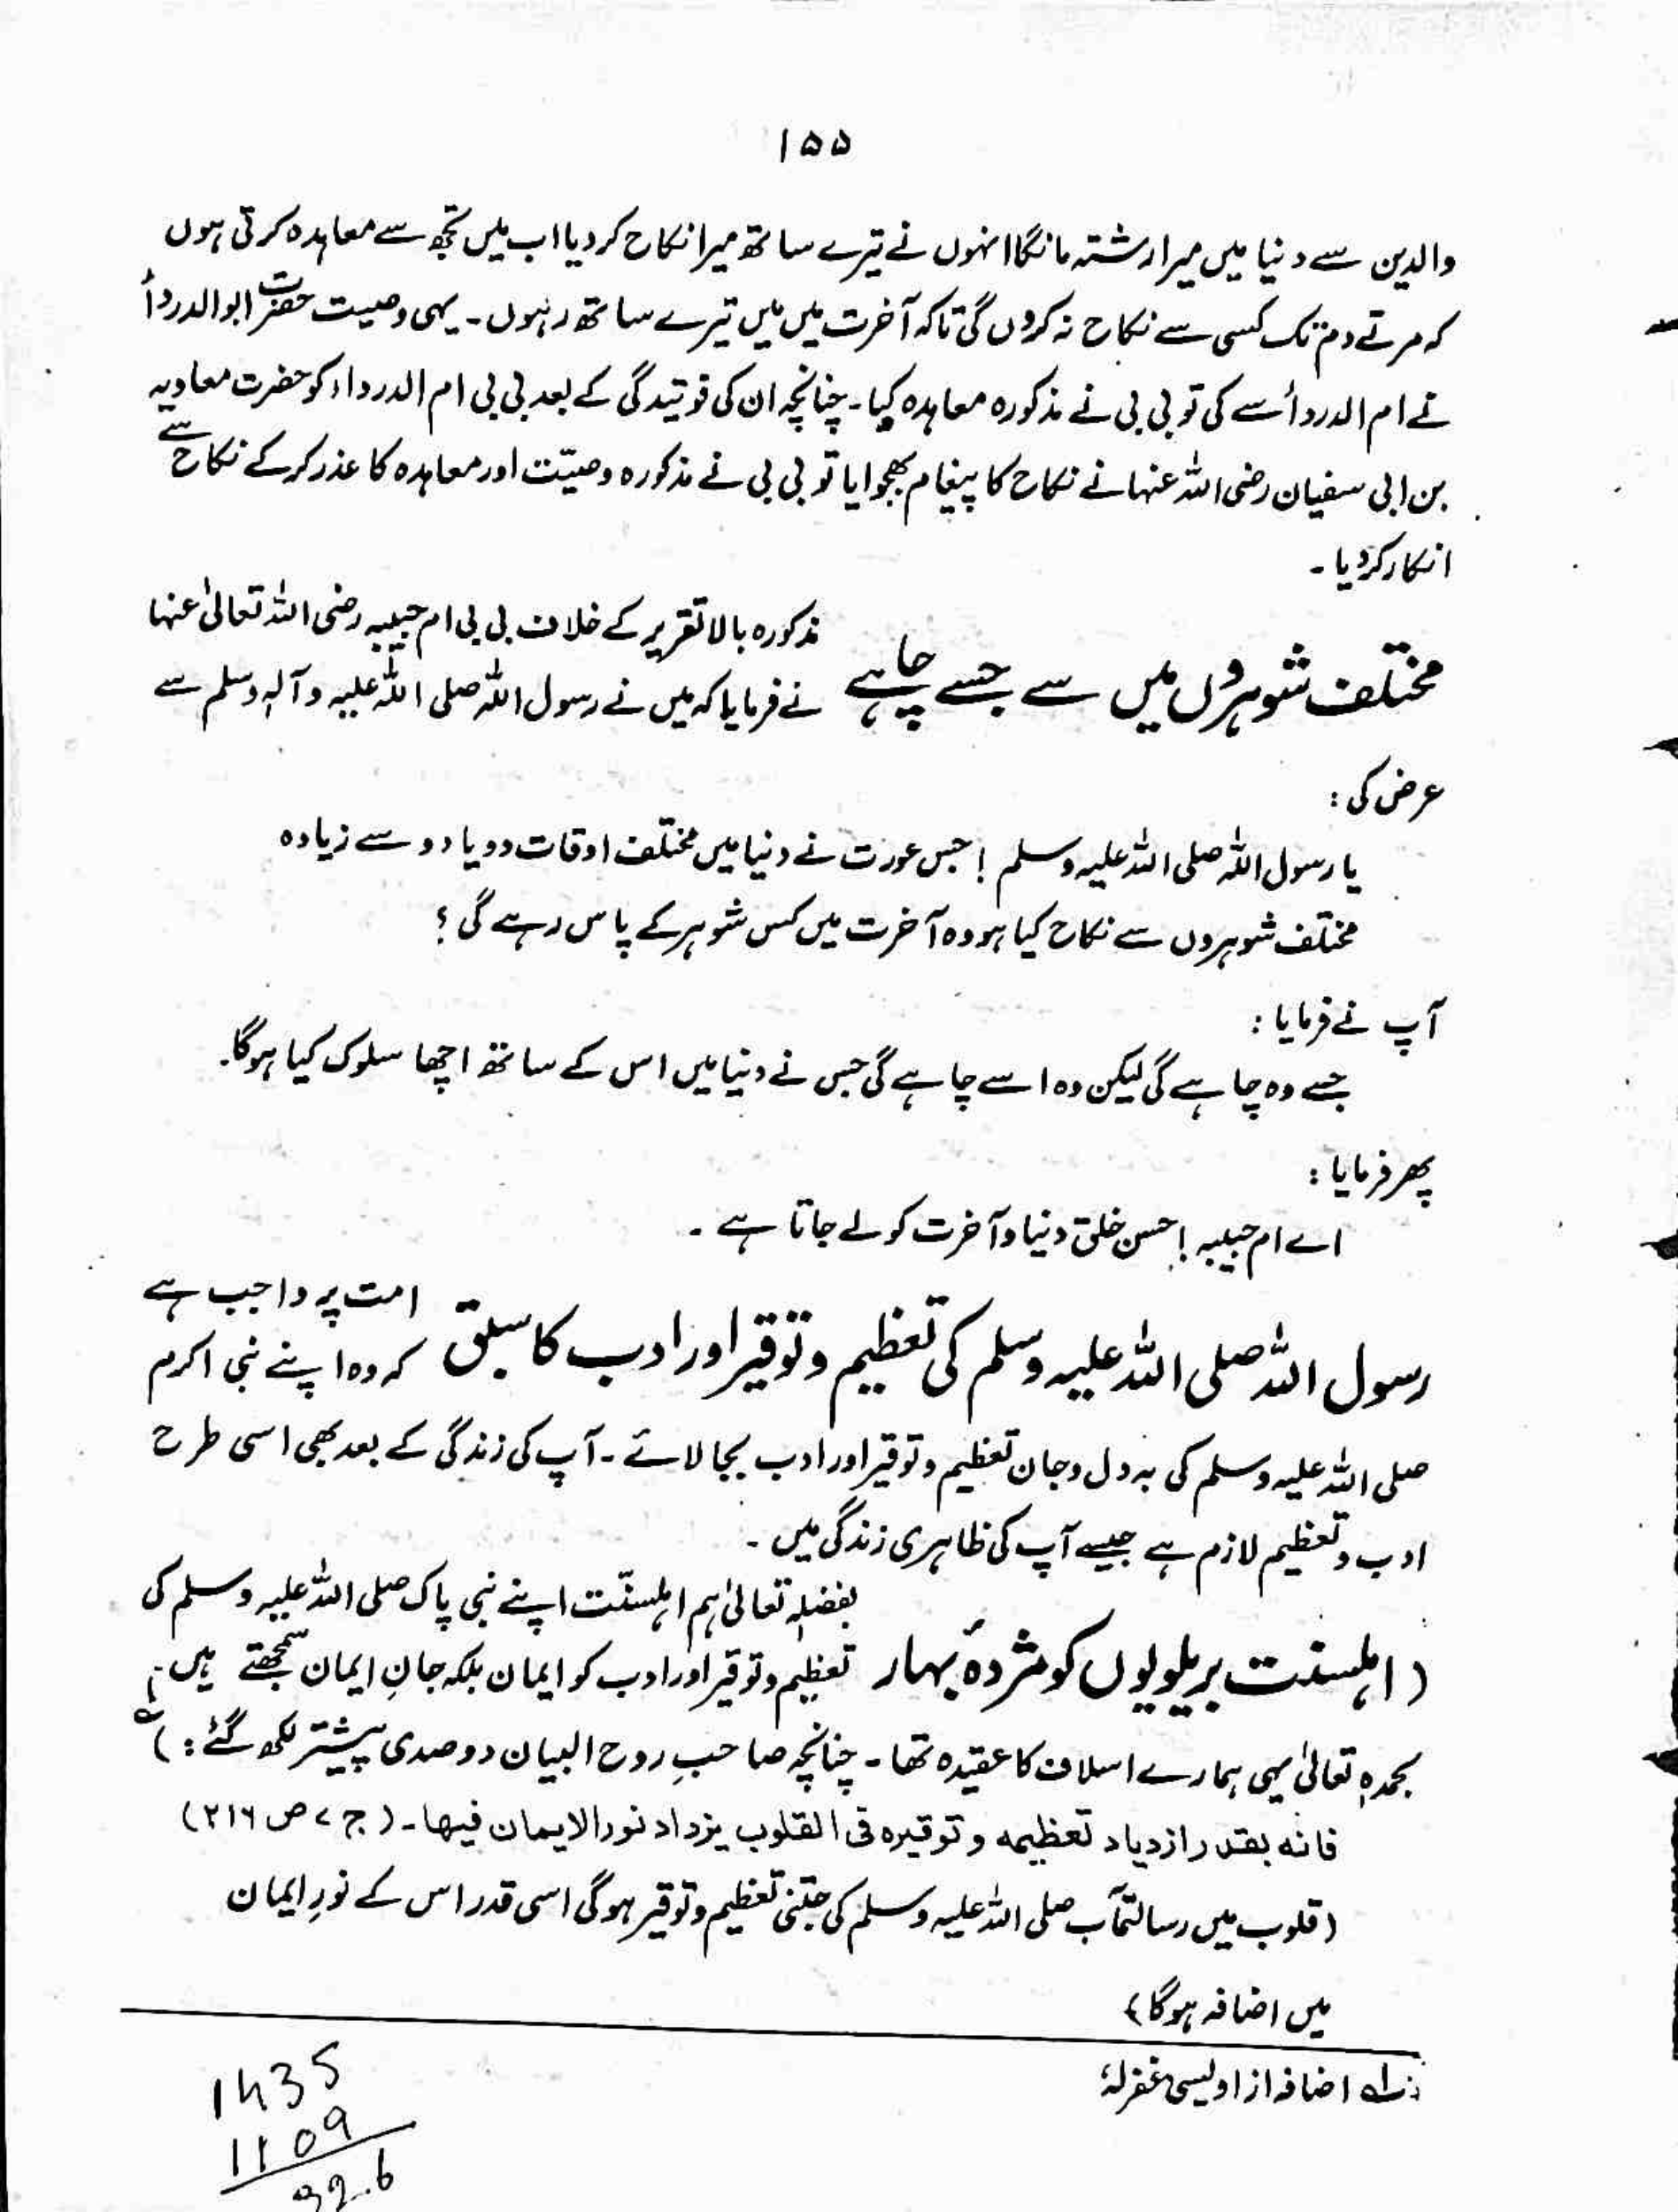 ۱۵۵
والدین سے دنیا میں میرا رشتہ مانگا انہوں نے تیرے ساتھ میرا نکاح کر دیا اب میں تجھ سے معاہدہ کرتی ہوں
کہ مرتے دم تک کسی سے نکاح نہ کروں گی تاکہ آخرت میں میں تیرے ساتھ رہوں ۔ یہی وصیت حضرت ابوالدرداؓ
نے ام الدرداؓ سے کی تو بی بی نے مذکورہ معاہدہ کیا ۔ چنانچہ ان کی فوتیدگی کے بعد بی بی ام الدرداء کو حضرت معاویہ
بن ابی سفیان رضی اللہ عنہا نے نکاح کا پیغام بھجوایا تو بی بی نے مذکورہ وصیّت اور معاہدہ کا عذر کر کے نکاح سے
انکار کر دیا ۔
مختلف شوہروں میں سے جسے چاہے
مذکورہ بالا تقریر کے خلاف بی بی ام حبیبہ رضی اللہ تعالیٰ عنہا
نے فرمایا کہ میں نے رسول اللہ صلی اللہ علیہ وآلہٖ وسلم سے
عرض کی :
یا رسول اللہ صلی اللہ علیہ وسلم ! جس عورت نے دنیا میں مختلف اوقات دو یا دو سے زیادہ
مختلف شوہروں سے نکاح کیا ہو وہ آخرت میں کس شوہر کے پاس رہے گی ؟
آپ نے فرمایا :
جسے وہ چاہے گی لیکن وہ اسے چاہے گی جس نے دنیا میں اس کے ساتھ اچھا سلوک کیا ہوگا۔
پھر فرمایا :
اے ام حبیبہ ! حسن خلق دنیا و آخرت کو لے جاتا ہے ۔
رسول اللہ صلی اللہ علیہ وسلم کی تعظیم و توقیر اور ادب کا سبق
امت پر واجب ہے
کہ وہ اپنے نبی اکرم
صلی اللہ علیہ وسلم کی بہ دل و جان تعظیم و توقیر اور ادب بجا لائے ۔ آپ کی زندگی کے بعد بھی اسی طرح
ادب و تعظیم لازم ہے جیسے آپ کی ظاہری زندگی میں ۔
(اہلسنت بریلویوں کو مژدۂ بہار
بفضلہٖ تعالیٰ ہم اہلسنّت اپنے نبی پاک صلی اللہ علیہ وسلم کی
تعظیم و توقیر اور ادب کو ایمان بلکہ جانِ ایمان سمجھتے ہیں ۔
بحمدہٖ تعالیٰ یہی ہمارے اسلاف کا عقیدہ تھا ۔ چنانچہ صاحبِ روح البیان دو صدی پیشتر لکھ گئے :)
فانه بقدر ازدیاد تعظیمه و توقیره فی القلوب یزداد نور الایمان فیها۔ (ج ۷ ص ۲۱۶)
(قلوب میں رسالتمآب صلی اللہ علیہ وسلم کی جتنی تعظیم و توقیر ہوگی اسی قدر اس کے نورِ ایمان
میں اضافہ ہوگا)
اضافہ از اویسی غفرلہٗ
1435
1109
326